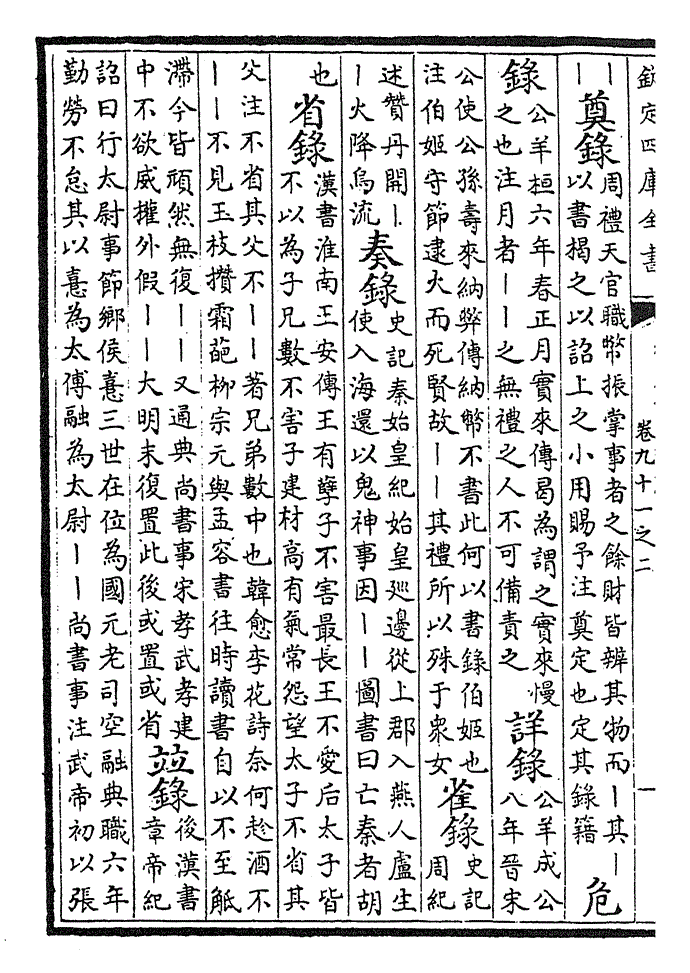 欽定四庫全書 卷九十一之二 一
丨丨奠錄周禮天官職幣振掌事者之餘財皆辨其物而丨其丨以書揭之以詔上之小用賜予注奠定也定其錄籍危
錄公羊桓六年春正月實來傳曷為謂之實來慢之也注月者丨丨之無禮之人不可備責之詳錄公羊成公八年晉宋
公使公孫壽來納弊傳納幣不書此何以書錄伯姬也注伯姬守節逮火而死賢故丨丨其禮所以殊于衆女雀錄史記周紀
述贊丹開丨丨火降烏流奏錄史記秦始皇紀始皇廵邊從上郡入燕人盧生使入海還以鬼神事因丨丨圖書曰亡秦者胡
也省錄漢書淮南王安傳王有孽子不害最長王不愛后太子皆不以為子兄數不害子建材高有氣常怨望太子不省其
父注不省其父不丨丨著兄弟數中也韓愈李花詩奈何趁酒不丨丨不見玉枝攢霜葩柳宗元與孟容書往時讀書自以不至觝
滯今皆頑然無復丨丨又通典尚書事宋孝武孝建中不欲威權外假丨丨大明末復置此後或置或省竝錄後漢書章帝紀
詔曰行太尉事節鄉侯憙三世在位為國元老司空融典職六年勤勞不怠其以憙為太傅融為太尉丨丨尚書事注武帝初以張